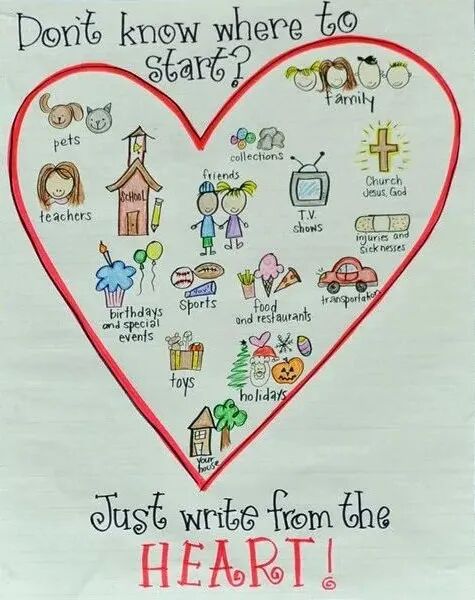 Don't know where to
start?
family
pets
collections
Church
Jesus, God
friends
SCHOOL
teachers
T.V.
shows
injuries and
sicknesses
birthdays
and special
events
sports
food
and restaurants
transportation
toys
holidays
your
house
Just write from the
HEART!